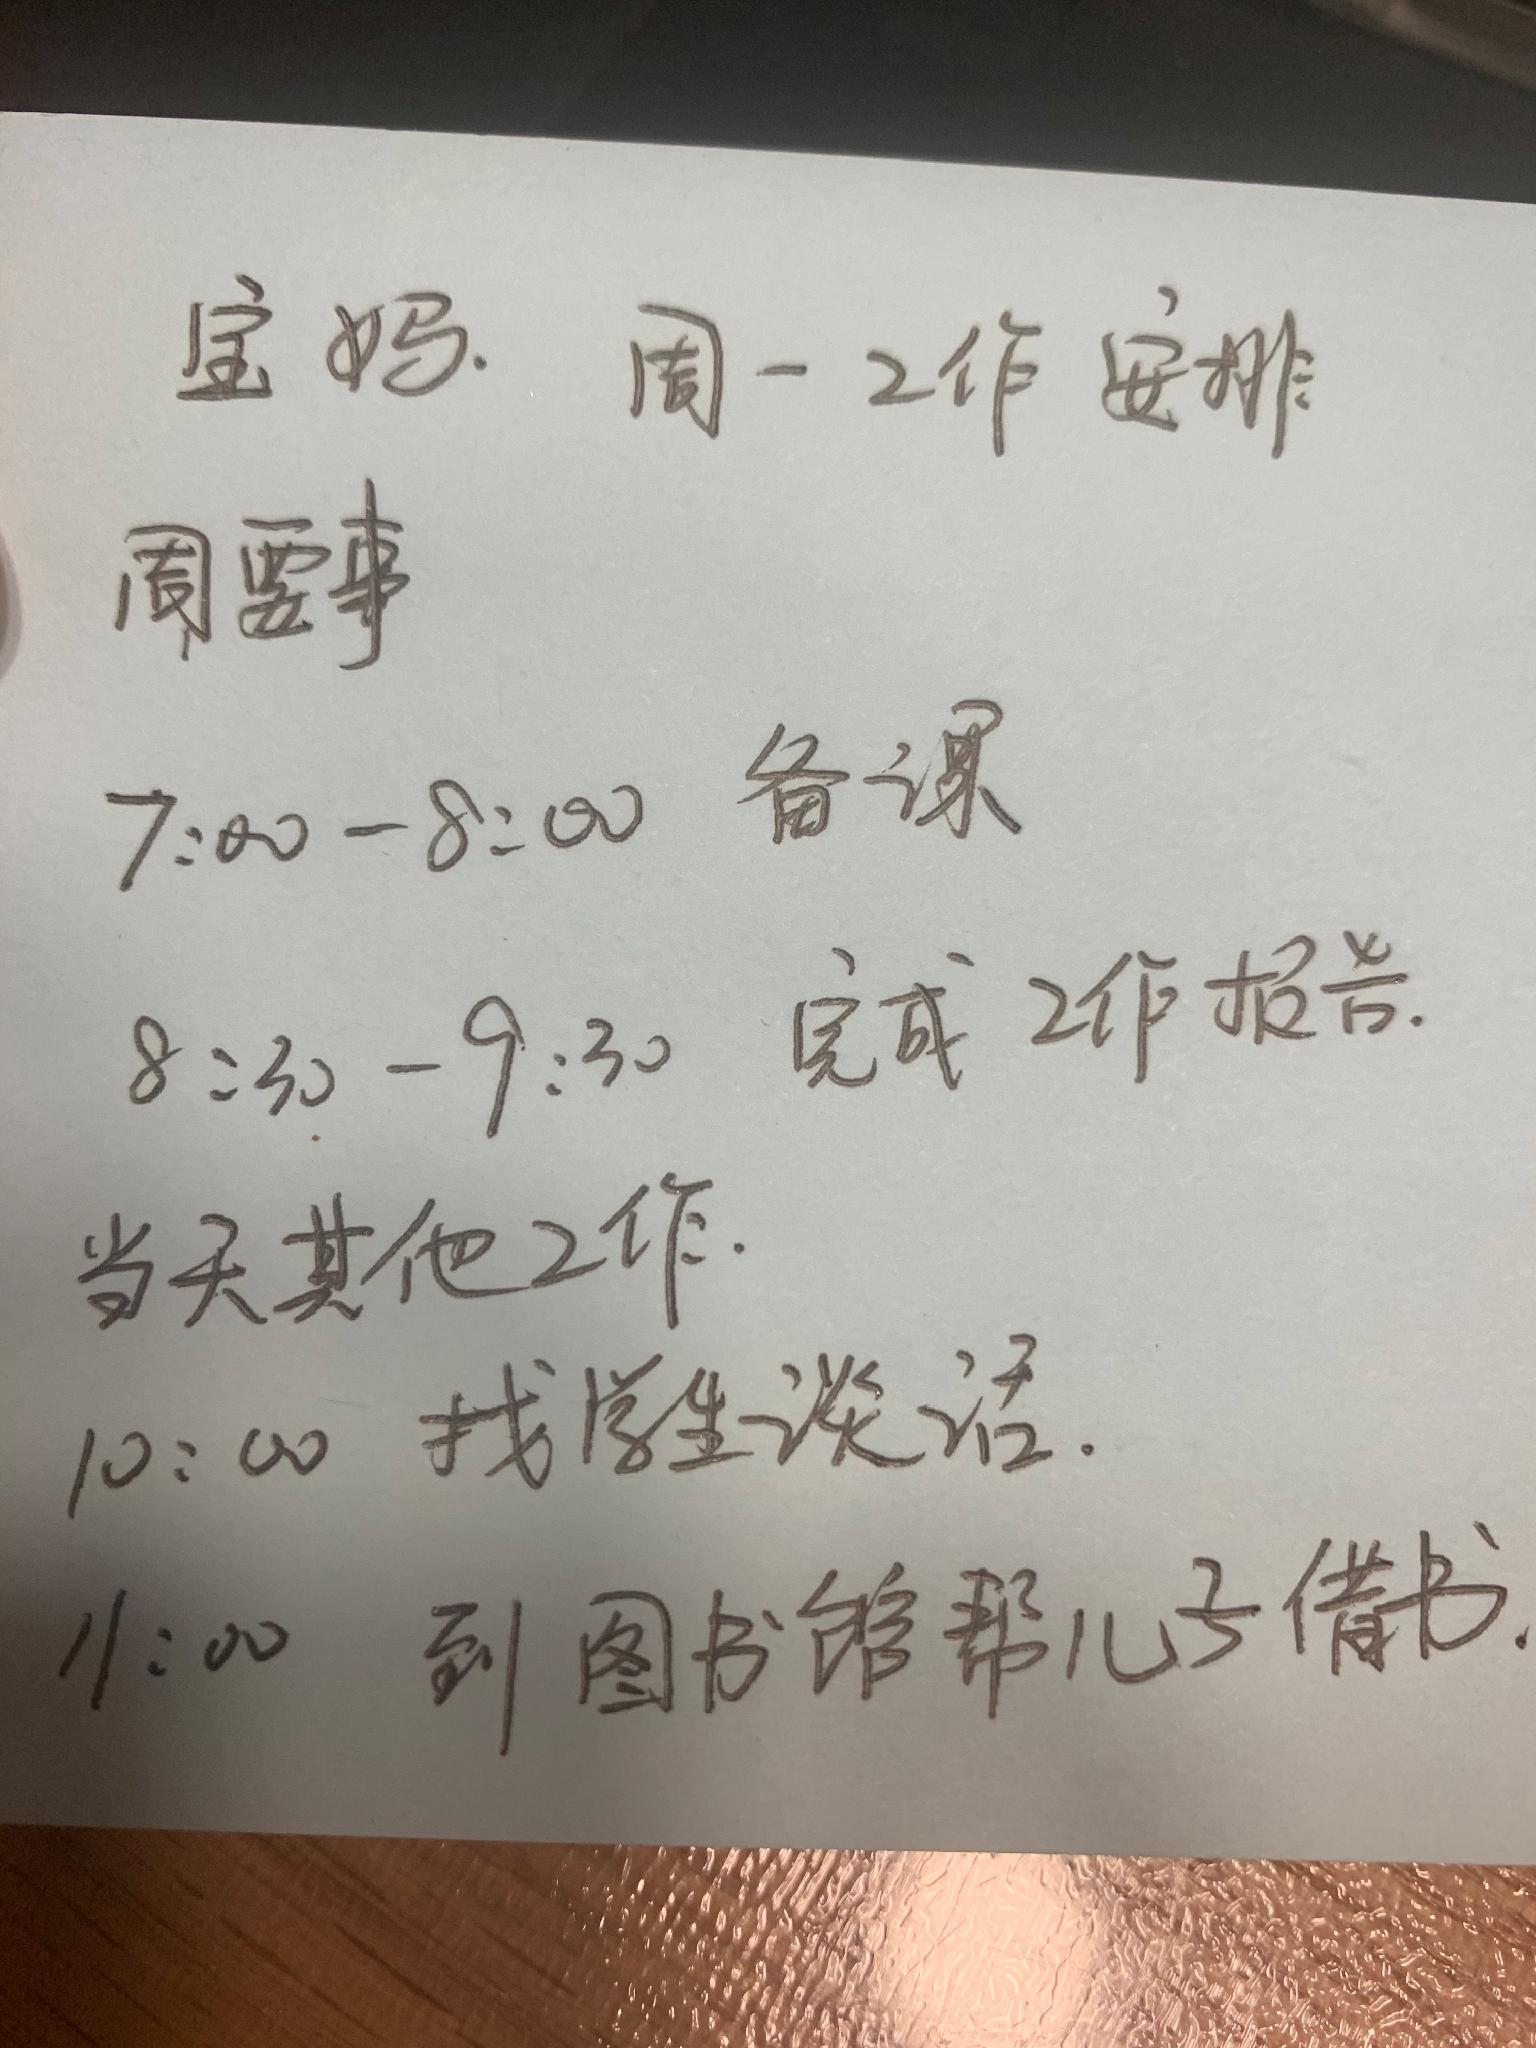 宝妈. 周一工作安排
周要事
7:00-8:00 备课
8:30-9:30 完成工作报告.
当天其他工作.
10:00 找学生谈话.
11:00 到图书馆帮儿子借书.